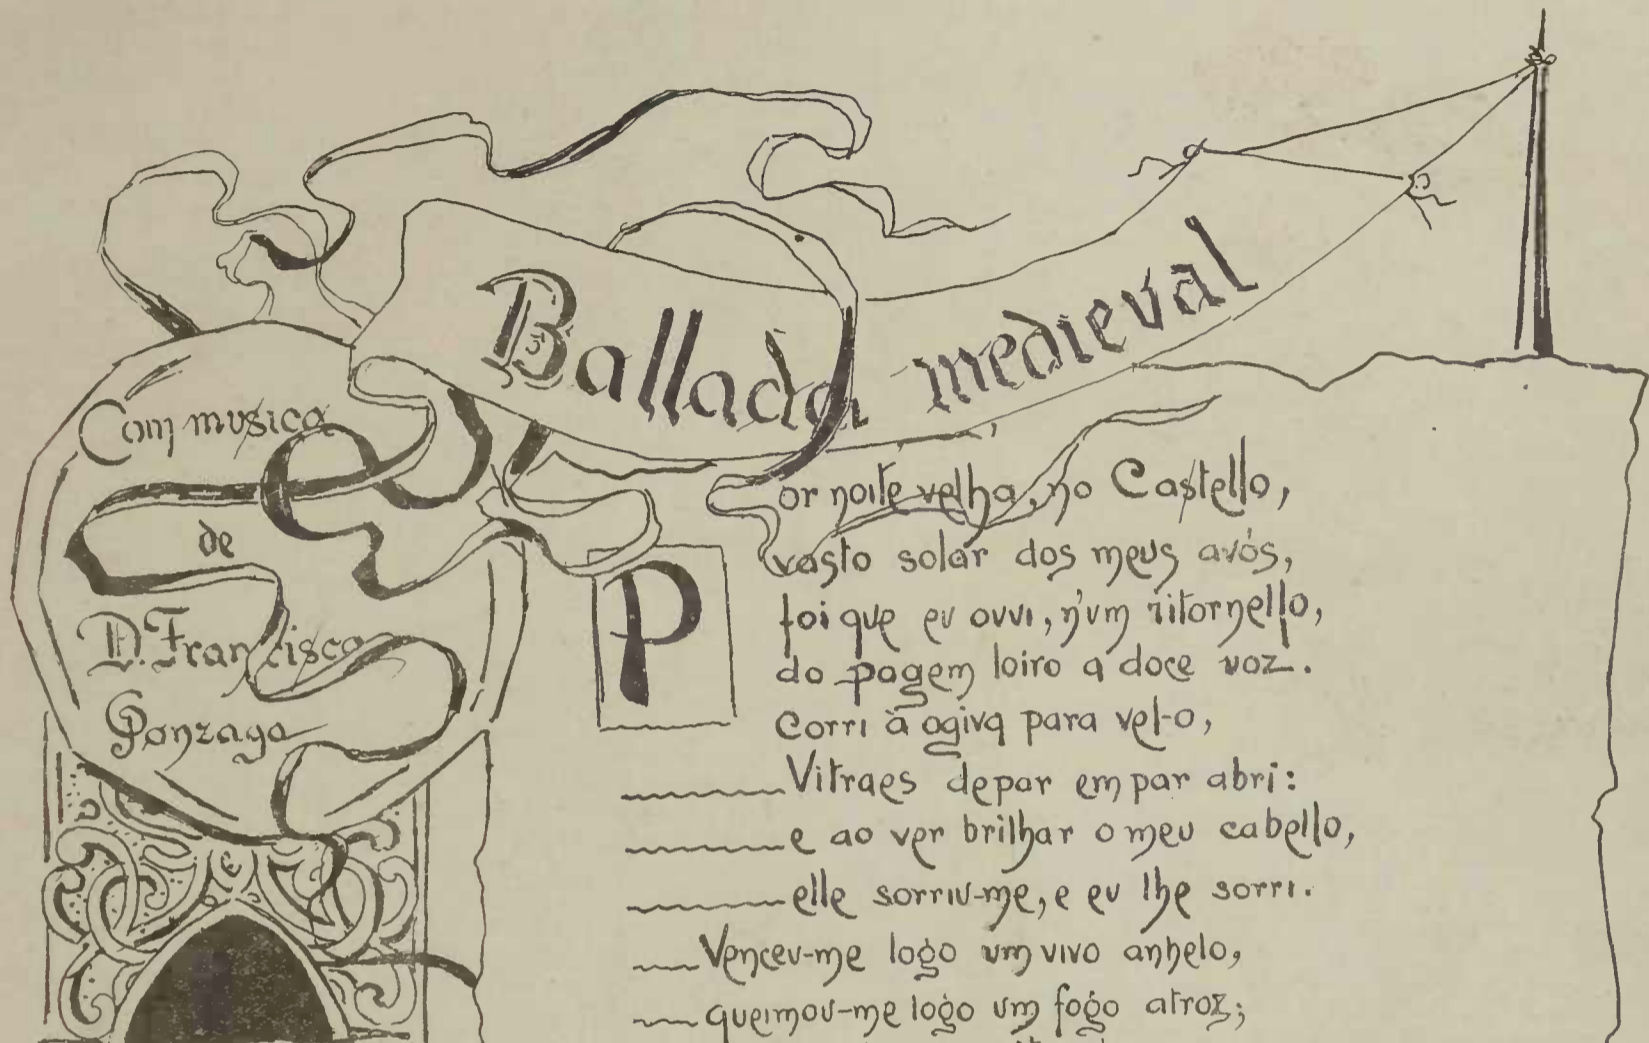 Ballada medieval
Com musica
de
D. Francisca
Gonzaga
Por noite velha, no Castello,
vasto solar dos meus avós,
foi que eu ouvi, n'um ritornello,
do pagem loiro a doce voz.
Corri à ogiva para vel-o,
Vitraes de par em par abri:
e ao ver brilhar o meu cabello,
elle sorriu-me, e eu lhe sorri.
Venceu-me logo um vivo anhelo,
queimou-me logo um fogo atroz;